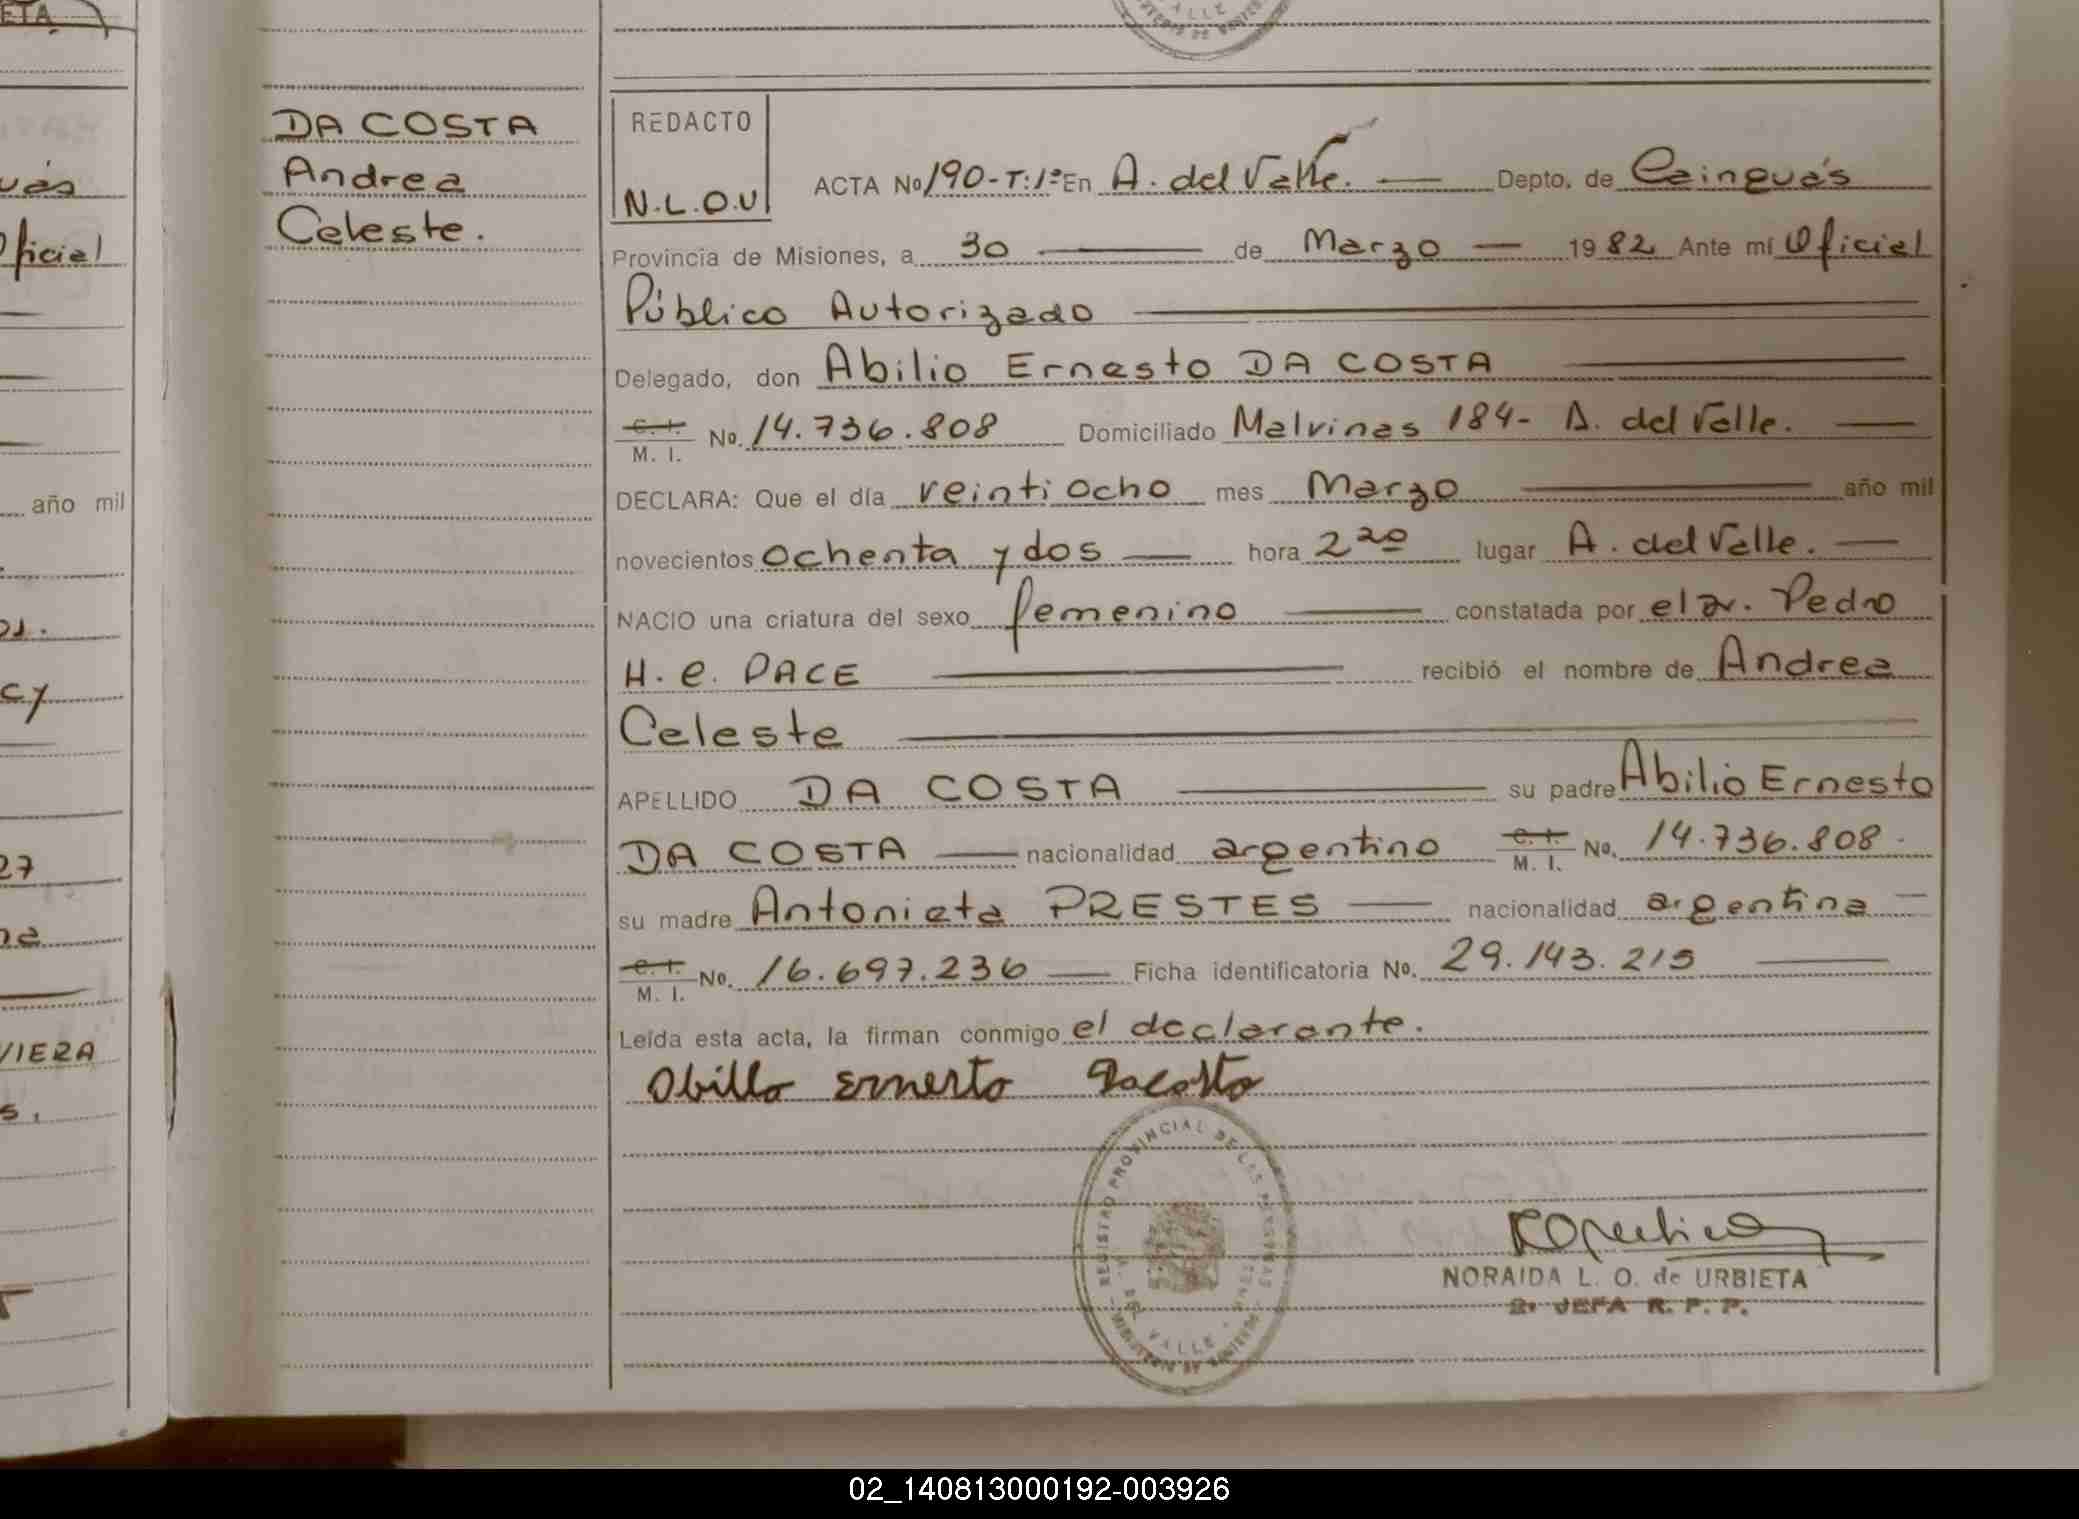 ETA
VALLE
DA COSTA
Andrea
Celeste.
REDACTO
N.L.O.U
ACTA No 190-T:1º En A. del Valle. — Depto. de Cainguás
Provincia de Misiones, a 30 — de Marzo — 1982 Ante mí Oficial
Público Autorizado
Delegado, don Abilio Ernesto DA COSTA
C. I. M. I. No. 14.736.808 Domiciliado Malvinas 184- A. del Valle. —
DECLARA: Que el día veintiocho mes Marzo — año mil
novecientos ochenta y dos — hora 2 20 lugar A. del Valle. —
NACIO una criatura del sexo femenino — constatada por el Dr. Pedro
H. C. PACE — recibió el nombre de Andrea
Celeste —
APELLIDO DA COSTA — su padre Abilio Ernesto
DA COSTA — nacionalidad argentino C. I. M. I. No. 14.736.808.
su madre Antonieta PRESTES — nacionalidad argentina —
C. I. M. I. No. 16.697.236 — Ficha identificatoria No. 29.143.215 —
Leída esta acta, la firman conmigo el declarante.
Obilio Ernesto Dacosta
REGISTRO PROVINCIAL DE LAS PERSONAS
DEL VALLE
NORAIDA L. O. de URBIETA
2º JEFA R. P. P.
uás
Oficial
año mil
os.
cy
27
na
VIERA
s.
02_140813000192-003926